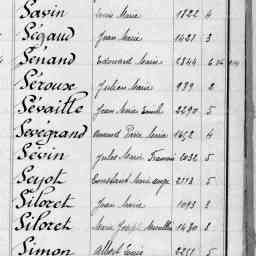 Savin Louis Marie 1822 4
Ségaud Jean Marie 1421 3
Sénand Edouard Marie 1344 6
Séroux Julien Marie 939 2
Sévaille Jean Marie Emile 2290 5
Sevégrand Amand Pierre Marie 1652 4
Sévin Jules Marie François 2032 5
Seyot Constant Marie Ange 2113 5
Siloret Jean Marie 1093 3
Siloret Marie Joseph 1480 3
Simon Albert Louis 2251 5